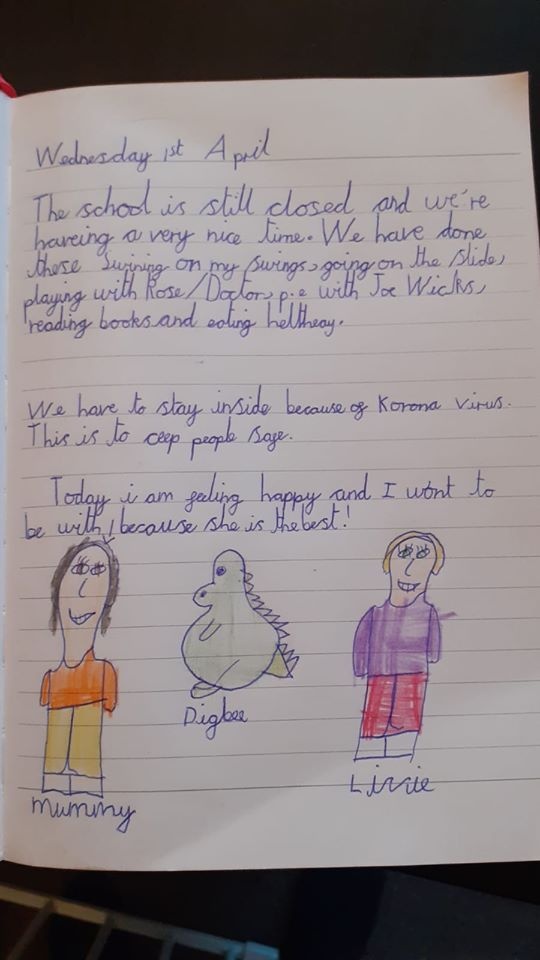 Wednesday 1st April
The school is still closed and we're
haveing a very nice time. We have done
these swining on my swings, going on the slide,
playing with Rose/Doctor, p.e with Joe Wicks,
reading books and eating helltheay.
We have to stay inside because of Korona virus.
This is to ceep people safe.
Today i am feeling happy and I wont to
be with, because she is the best!
Digbee
Mummy